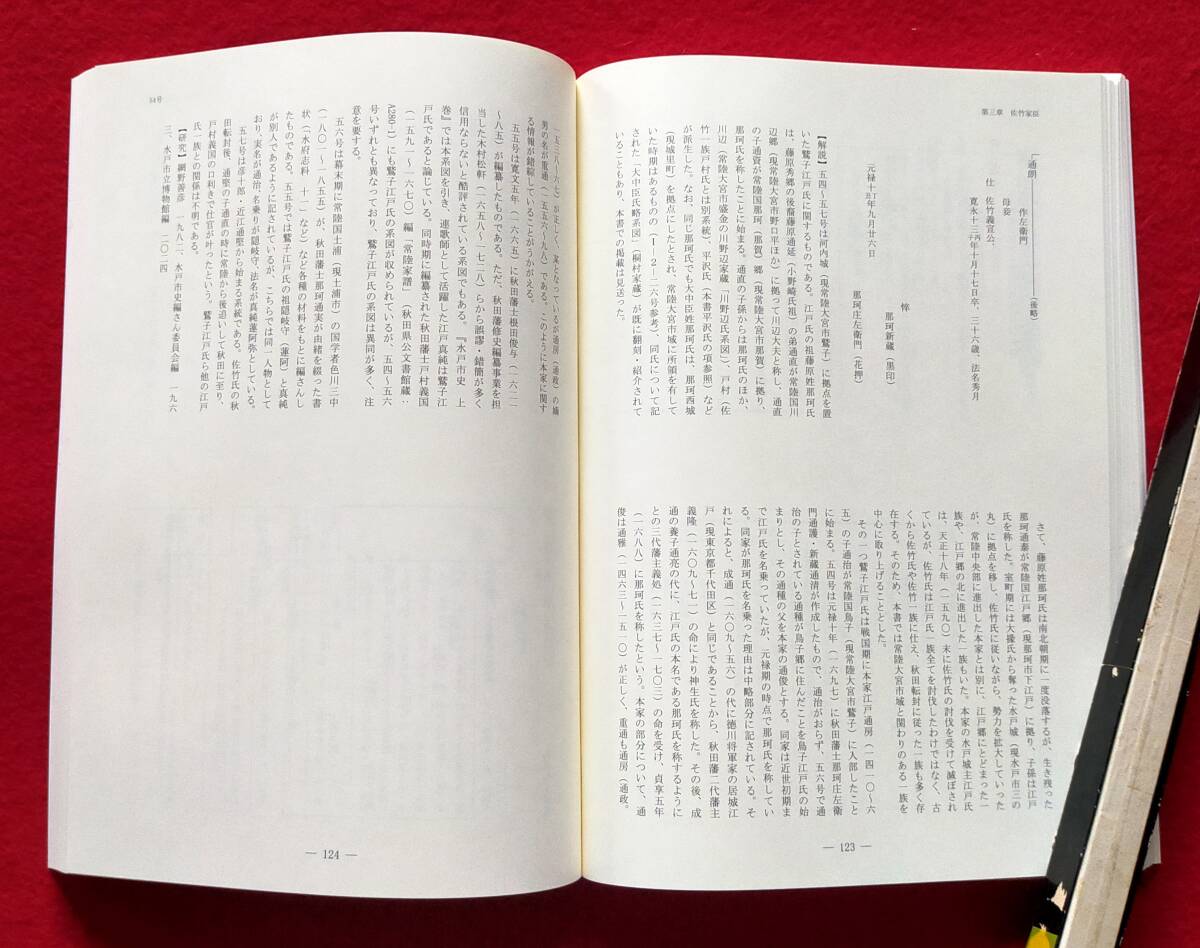 第三章 佐竹家臣
通朗
作左衛門
(後略)
母妾
仕 佐竹義宣公、
寛永十三丙子年十月十七日卒、三十六歳、法名秀月
悴
那珂新蔵(黒印)
元禄十丑年九月廿六日
那珂庄左衛門(花押)
【解説】五四~五七号は河内城(現常陸大宮市鷲子)に拠点を置
いた鷲子江戸氏に関するものである。江戸氏の祖藤原姓那珂氏
は、藤原秀郷の後裔藤原通延(小野崎氏祖)の弟通直が常陸国川
辺郷(現常陸大宮市野口平ほか)に拠って川辺大夫と称し、通直
の子通資が常陸国那珂(那賀)郷(現常陸大宮市那賀)に拠り、
那珂氏を称したことに始まる。通直の子孫からは那珂氏のほか、
川辺(常陸大宮市盛金の川野辺家蔵「川野辺氏系図」)、戸村(佐
竹一族戸村氏とは別系統)、平沢氏(本書平沢氏の項参照)など
が派生した。なお、同じ那珂氏でも大中臣姓那珂氏は、那珂西城
(現城里町)を拠点にしたとされ、常陸大宮市域に所領を有して
いた時期はあるものの(Ⅰ-2-二六号参考)、同氏について記
された「大中臣氏略系図」(桐村家蔵)が既に翻刻・紹介されて
いることもあり、本書での掲載は見送った。
さて、藤原姓那珂氏は南北朝期に一度没落するが、生き残った
那珂通泰が常陸国江戸郷(現那珂市下江戸)に拠り、子孫は江戸
氏を称した。室町期には大掾氏から奪った水戸城(現水戸市三の
丸)に拠点を移し、佐竹氏に従いながら、勢力を拡大していった
が、常陸中央部に進出した本家とは別に、江戸郷にとどまった一
族や、江戸郷の北に進出した一族もいた。本家の水戸城主江戸氏
は、天正十八年(一五九〇)末に佐竹氏の討伐を受けて滅ぼされ
ているが、佐竹氏は江戸氏一族全てを討伐したわけではなく、古
くから佐竹氏や佐竹一族に仕え、秋田転封に従った一族も多く存
在する。そのため、本書では常陸大宮市域と関わりのある一族を
中心に取り上げることとした。
その一つ鷲子江戸氏は戦国期に本家江戸通房(一四一〇~六
五)の子通治が常陸国鳥子(現常陸大宮市鷲子)に入部したこと
に始まる。五四号は元禄十年(一六九七)に秋田藩士那珂庄左衛
門通護・新蔵通清が作成したもので、通治がおらず、五六号で通
治の子とされている通種が鳥子郷に住んだことを鳥子江戸氏の始
まりとし、その通種の父を本家の通俊とする。同家は近世初期ま
で江戸氏を名乗っていたが、元禄期の時点で那珂氏を称してい
る。同家が那珂氏を名乗った理由は中略部分に記されている。そ
れによると、成通(一六〇九~五六)の代に徳川将軍家の居城江
戸(現東京都千代田区)と同じであることから、秋田藩二代藩主
義隆(一六〇九~七一)の命により神生氏を称した。その後、成
通の養子通亮の代に、江戸氏の本名である那珂氏を称するように
との三代藩主義処(一六三七~一七〇三)の命を受け、貞享五年
(一六八八)に那珂氏を称したという。本家の部分について、通
俊は通雅(一四六三~一五一〇)が正しく、重通も通房(通政。
― 123 ―
54号
一五三八~六七)が正しく、某となっているが通房(通政)の嫡
男の名が重通(一五五六~九八)である。このように本家に関す
る情報が錯綜していることがうかがえる。
五五号は寛文五年(一六六五)に秋田藩士根田俊与(一六二二
~八五)が編纂したものである。ただ、秋田藩修史編纂事業を担
当した木村松軒(一六五八~一七二八)らから誤謬・錯簡が多く
信用ならないと酷評されている系図でもある。『水戸市史 上
巻』では本系図を引き、連歌師として活躍した江戸真純は鷲子江
戸氏であると論じている。同時期に編纂された秋田藩士戸村義国
(一五九一~一六七〇)編「常陸家譜」(秋田県公文書館蔵:
A280-1)にも鷲子江戸氏の系図が収められているが、五四~五六
号いずれとも異なっており、鷲子江戸氏の系図は異同が多く、注
意を要する。
五六号は幕末期に常陸国土浦(現土浦市)の国学者色川三中
(一八〇一~一八五五)が、秋田藩士那珂通実が由緒を綴った書
状(「水府志料 十一」など)など各種の材料をもとに編さんし
たものである。五五号では鷲子江戸氏の祖隠岐守(蓮阿)と真純
が別人であるように記されているが、こちらでは同一人物として
おり、実名が通治、名乗りが隠岐守、法名が真純蓮阿弥としている。
五七号は彦十郎・近江通堅から始まる系統である。佐竹氏の秋
田転封後、通堅の子通直の時に常陸から後追いして秋田に至り、
戸村義国の口利きで仕官が叶ったという。鷲子江戸氏ら他の江戸
氏一族との関係は不明である。
【研究】網野善彦 一九八二、水戸市史編さん委員会編 一九六
三、水戸市立博物館編 二〇二四
― 124 ―